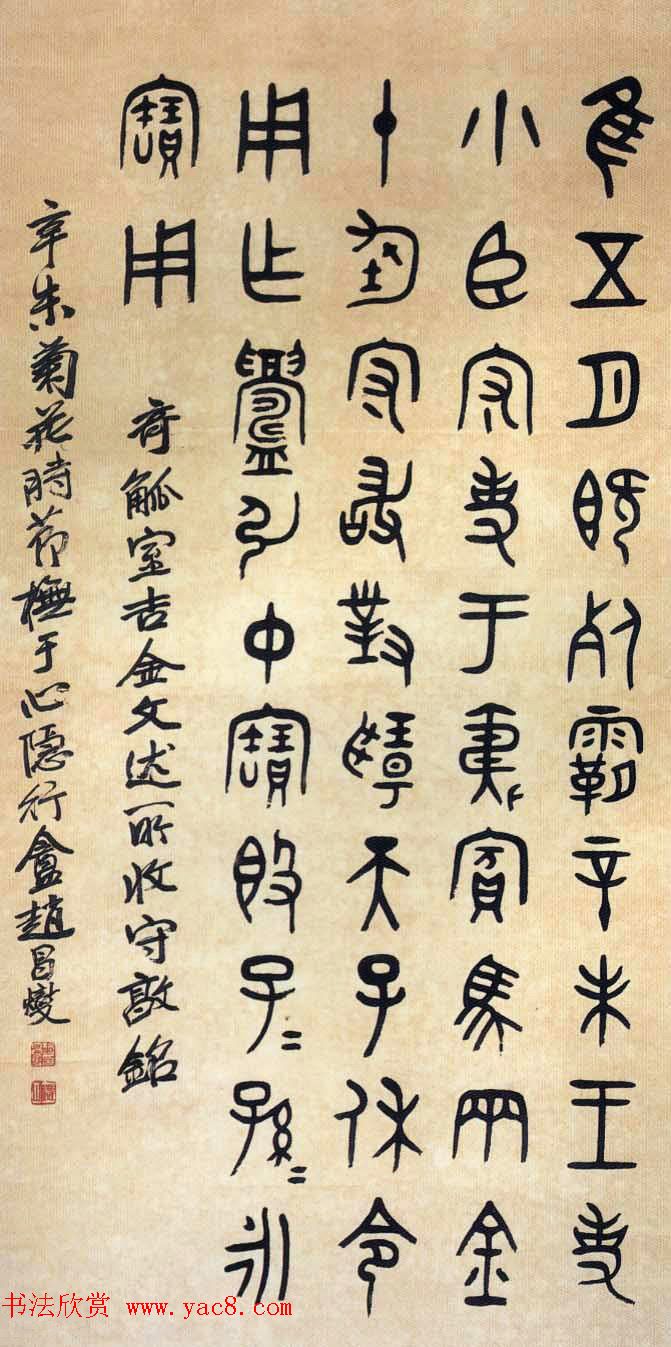 隹五月既死霸辛未王吏
小臣守吏于夷賓馬兩金
十鈞守敢對揚天子休令
用乍鑄引中寶𣪘子=孫=永
寶用
奇觚室吉金文述所收守敦銘
辛未菊花時節橅于心隱行盦趙昌燮
书法欣赏 www.yac8.com